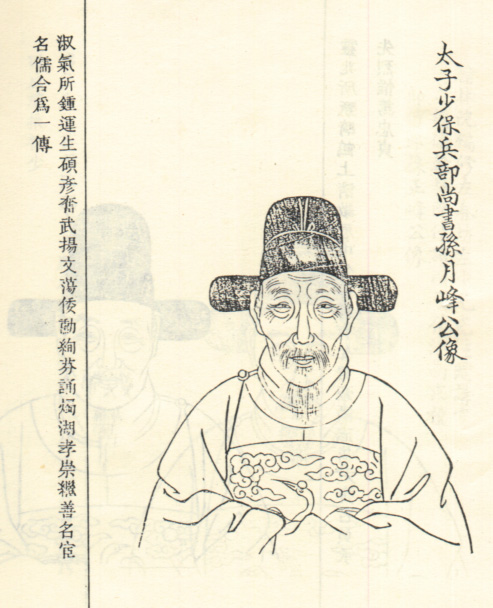 太子少保兵部尚書孫月峰公像
淑氣所鍾運生碩彥奮武揚文蕩倭勛絢芬誦燭湖孝崇繼善名宦
名儒合爲一傳